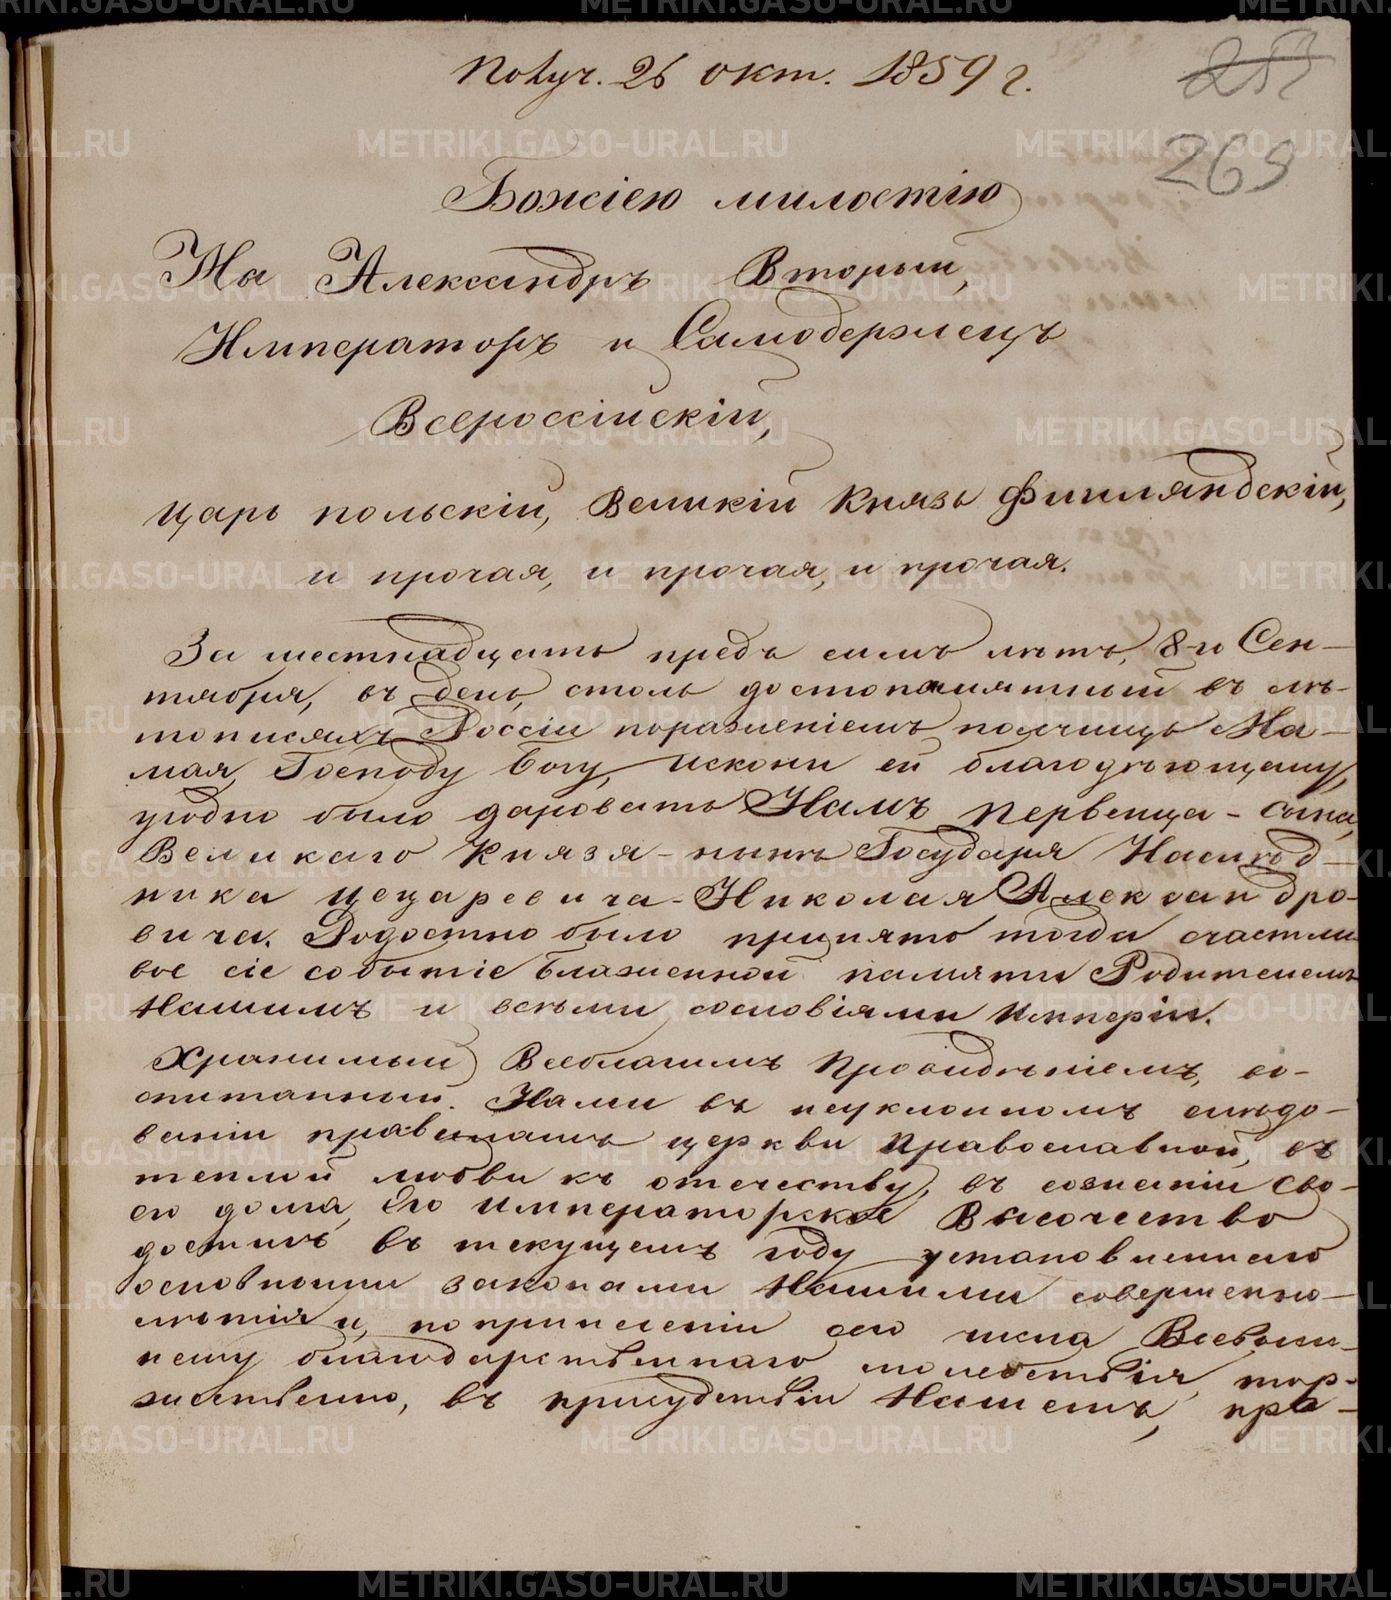 Получ. 26 окт. 1859 г.
253
269
Божіею милостію
Мы Александръ Вторый,
Императоръ и Самодержецъ
Всероссійскій,
царь польскій, Великій Князь Финляндскій,
и прочая, и прочая, и прочая.
За шестнадцать предъ симъ лѣтъ, 8-го Сен-
тября, въ день, столь достопамятный въ лѣ-
тописяхъ Россіи пораженіемъ полчищъ Ма-
мая, Господу Богу, искони ей благодѣющему,
угодно было даровать Намъ первенца-сына,
Великаго Князя-нынѣ Государя Наслѣд-
ника Цецаревича-Николая Александро-
вича. Радостно было принято тогда счастли
вое сіе событіе блаженной памяти Родителемъ
Нашимъ и всѣми сословіями Имперіи.
Хранимый Всеблагимъ Провидѣніемъ, во-
спитанный Нами въ неуклонномъ слѣдо-
ваніи правиламъ церкви Православной, въ
теплой любви къ отечеству, въ сознаніи сво-
его долга, Его Императорское Высочество
достигъ въ текущемъ году установленнаго
основными законами Нашими совершенно-
лѣтія и, по принесеніи
Всевыш-
нему благодарственнаго молебствія, тор-
жественно, въ присудствіи Нашемъ, при-
METRIKI.GASO-URAL.RU